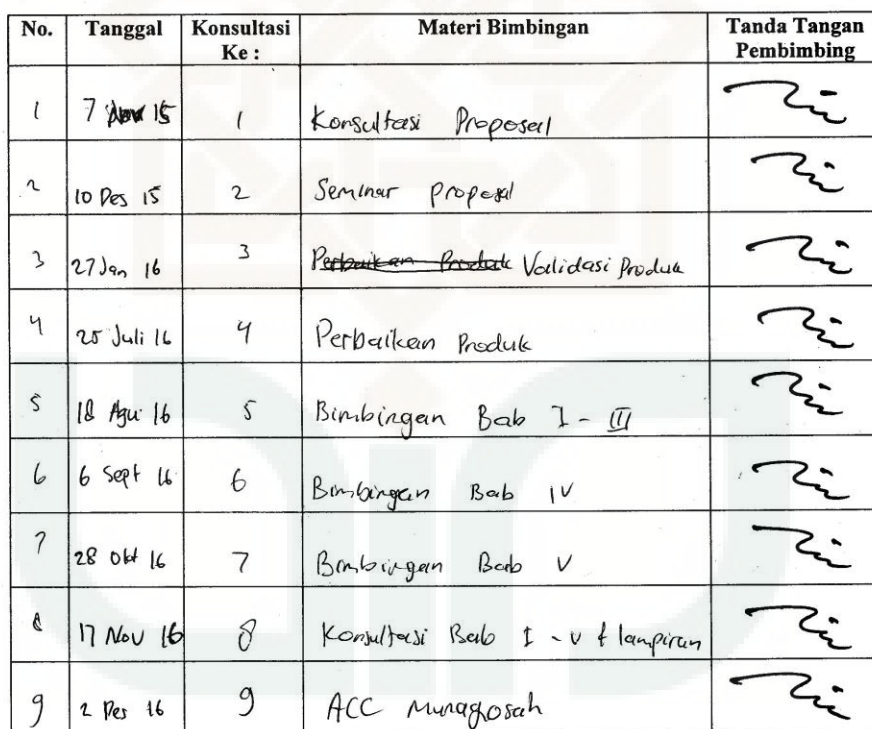 No. Tanggal Konsultasi Ke : Materi Bimbingan Tanda Tangan Pembimbing
1 7 Nov 15 1 Konsultasi Proposal
2 10 Des 15 2 Seminar proposal
3 27 Jan 16 3 Perbaikan Produk Validasi Produk
4 25 Juli 16 4 Perbaikan Produk
5 18 Agu 16 5 Bimbingan Bab I - III
6 6 Sept 16 6 Bimbingan Bab IV
7 28 Okt 16 7 Bimbingan Bab V
8 17 Nov 16 8 Konsultasi Bab I - V & lampiran
9 2 Des 16 9 ACC Munaqosah